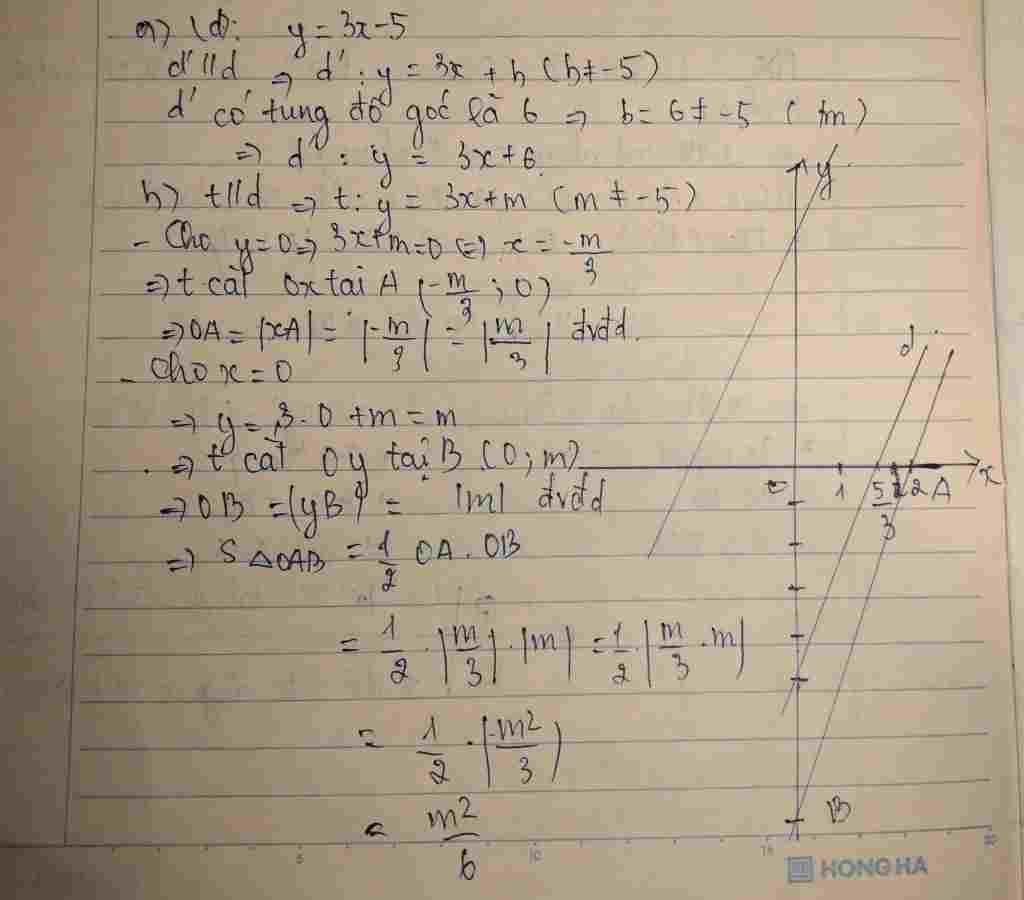 a) (d): y = 3x - 5
d' // d => d': y = 3x + b (b ≠ -5)
d' có tung độ gốc là 6 => b = 6 ≠ -5 (tm)
=> d': y = 3x + 6
b) t // d => t: y = 3x + m (m ≠ -5)
- Cho y = 0 => 3x + m = 0 <=> x = -m/3
=> t cắt Ox tại A (-m/3 ; 0)
=> OA = |xA| = |-m/3| = |m/3| đvđd.
- Cho x = 0
=> y = 3.0 + m = m
=> t cắt Oy tại B (0; m)
=> OB = |yB| = |m| đvđd
=> S△OAB = 1/2 OA . OB
= 1/2 . |m/3| . |m| = 1/2 . |m/3 . m|
= 1/2 . |m²/3|
= m²/6
y
d
x
1 5/3 2 A
B
5 10 15
HONG HA